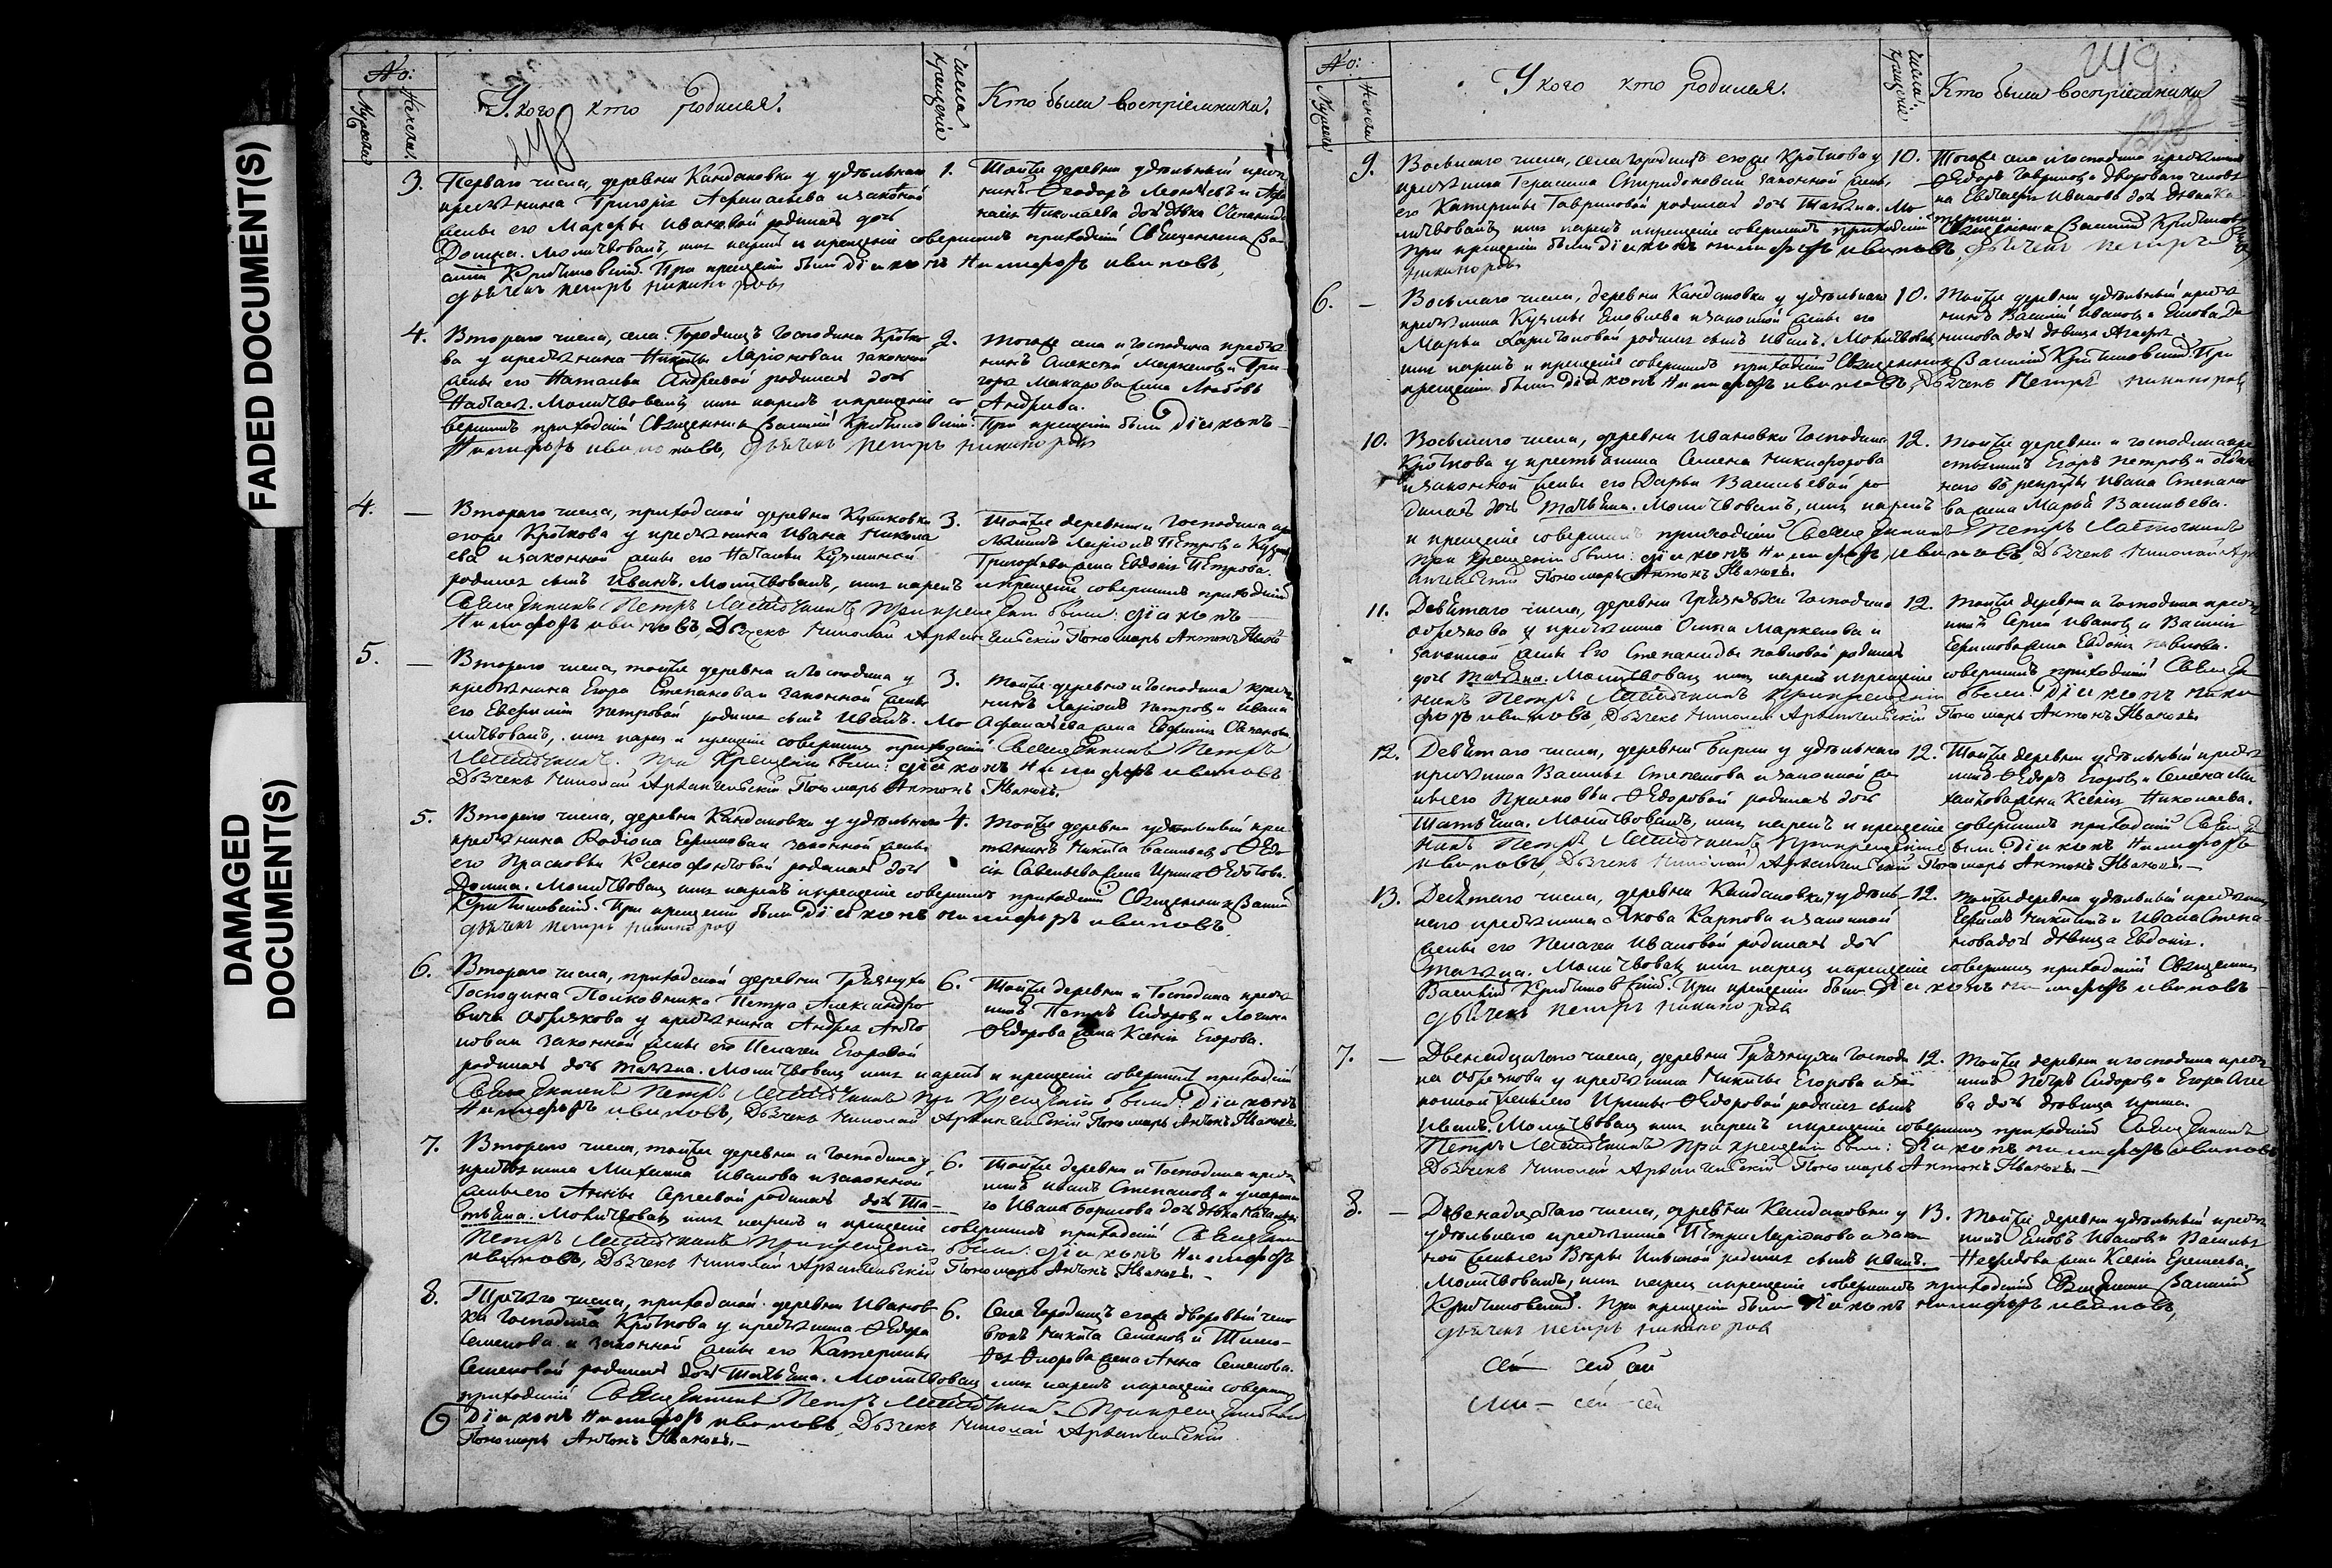 FADED DOCUMENT(S)
DAMAGED
DOCUMENT(S)
No:
Мужеска
Женска.
У кого кто родился.
Числа
крещенiя
Кто были воспрiемники.
248
3. Перваго числа, деревни Кандаковки у удѣльнаго
крестьянина Григорiя и законной
жены его Марфы Ивановой родилась дочь
Домна. Молитвовалъ, имя нарекъ и крещенiе совершилъ приходскiй Священникъ Ва
силiй При крещенiи были Дiаконъ Никифоръ Ивановъ,
дьячекъ Петръ Никаноровъ
1. Тойже деревни удѣльный крес
нинъ Феодоръ и
Николаева дочь дѣвка Степанида
4. Втораго числа, села Городищъ Господина Кротко
ва у крестьянина Никиты Ларiонова и законной
жены его Натальи Андреевой родилась дочь
Молитвовалъ имя нарекъ и крещенiе со
вершилъ приходскiй Священникъ Василiй
При крещенiи были Дiаконъ
Никифоръ Ивановъ, дьячекъ Петръ Никаноровъ
2. Тогоже села и господина кресть
нинъ Алексѣй Маркеловъ и Гри
горья Макарова жена Любовь
Андреева.
4. — Втораго числа, приходской деревни Куликовки
егоже Кроткова у крестьянина Ивана Никола
ева и законной жены его Натальи Кузминой
родился сынъ Иванъ. Молитвовалъ, имя нарекъ и крещенiе совершилъ приходскiй
Священникъ Петръ Ласточкинъ При крещенiи были: дiаконъ
Никифоръ Ивановъ, Дьячекъ Николай Архангельскiй Пономарь Антонъ Ивановъ
3. Тойже деревни и Господина кре
стьянинъ Ларiонъ Петровъ и Кузмы
Григорьева жена Евдокiя Петрова.
5. — Втораго числа, тойже деревни и Господина у
крестьянина Егора Степанова и законной жены
его Евфимiи Петровой родился сынъ Иванъ. Мо
литвовалъ, имя нарекъ и крещенiе совершилъ приходскiй Священникъ Петръ
Ласточкинъ. При Крещенiи были: дiаконъ Никифоръ Ивановъ
Дьячекъ Николай Архангельскiй Пономарь Антонъ Ивановъ.
3. Тойже деревни и Господина кресть
нинъ Ларiонъ Петровъ и Ивана
Афанасьева жена Евфимiя
5. Втораго числа, деревни Кандаковки у удѣльнаго
крестьянина Родiона Ефимова и законной жены
его Прасковьи Ксенофонтовой родилась дочь
Домна. Молитвовалъ имя нарекъ и крещенiе совершилъ приходскiй Священникъ Василiй
При крещенiи были Дiаконъ Никифоръ Ивановъ
дьячекъ Петръ Никаноровъ
4. Тойже деревни удѣльный кре
стьянинъ Никита Васильевъ и Федо
сiя Савельева жена Ирина Федотова.
6. Втораго числа, приходской деревни Грязнухи
Господина Полковника Петра Александро
вича Обрезкова у крестьянина Андрея Анто
нова и законной жены его Пелагеи Егоровой
родилась дочь Татьяна. Молитвовалъ имя нарекъ и крещенiе совершилъ приходскiй
Священникъ Петръ Ласточкинъ При Крещенiи были: Дiаконъ
Никифоръ Ивановъ, Дьячекъ Николай Архангельскiй Пономарь Антонъ Ивановъ.
6. Тойже деревни и Господина кресть
нинъ Петръ Сидоровъ и Логина
Федорова жена Ксенiя Егорова.
7. Втораго числа, тойже деревни и Господина у
крестьянина Михаила Иванова и законной
жены его Анны Сергеевой родилась дочь Та-
тьяна. Молитвовалъ имя нарекъ и крещенiе совершилъ приходскiй Священникъ
Петръ Ласточкинъ При крещенiи были: дiаконъ Никифоръ
Ивановъ, Дьячекъ Николай Архангельскiй Пономарь Антонъ Ивановъ. —
6. Тойже деревни и Господина кресть
нинъ Иванъ Степановъ и умерша
го Ивана Борисова дочь дѣвка
8. Третьяго числа, приходской деревни Иванов
ки Господина Кроткова у крестьянина Федора
Семенова и законной жены его Катерины
Семеновой родилась дочь Татьяна. Молитвовалъ имя нарекъ и крещенiе совершилъ
приходскiй Священникъ Петръ Ласточкинъ. При крещенiи были
Дiаконъ Никифоръ Ивановъ, Дьячекъ Николай Архангельскiй
Пономарь Антонъ Ивановъ. —
6. Села Городищъ егоже дворовый чело
вѣкъ Никита Семеновъ и Тимо-
фея жена Анна Семенова.
No:
Мужеска
Женска
У кого кто родился.
Числа
крещенiя
Кто были воспрiемники
249
9. Восьмаго числа, села Городищъ егоже Кроткова у
крестьянина Герасима Спиридонова и законной жены
его Катерины Гавриловой родилась дочь Татьяна. Мо
литвовалъ имя нарекъ и крещенiе совершилъ приходскiй Священникъ Василiй
При крещенiи были Дiаконъ Никифоръ Ивановъ, дьячекъ Петръ
Никаноровъ
10. Тогоже села и господина крестьянинъ
Федоръ Гавриловъ и двороваго человѣ
ка Иванова дочь дѣвка Ка
терина.
6. — Восьмаго числа, деревни Кандаковки у удѣльнаго
крестьянина Кузмы Яковлева и законной жены его
Марьи Харитоновой родился сынъ Иванъ. Молитвовалъ
имя нарекъ и крещенiе совершилъ приходскiй Священникъ Василiй При
крещенiи были Дiаконъ Никифоръ Ивановъ, Дьячекъ Петръ Никаноровъ
10. Тойже деревни удѣльный кресть
нинъ Василiй Ивановъ и Якова
дочь дѣвица Агафья.
10. Восьмаго числа, деревни Ивановки Господина
Кроткова у крестьянина Семена Никифорова
и законной жены его Дарьи Васильевой ро
дилась дочь Татьяна. Молитвовалъ, имя нарекъ
и крещенiе совершилъ приходскiй Священникъ Петръ Ласточкинъ
При Крещенiи были: дiаконъ Никифоръ Ивановъ, Дьячекъ Николай Арх
ангельскiй Пономарь Антонъ Ивановъ.
12. Тойже деревни и господина кре
стьянинъ Егоръ Петровъ и отдан
наго въ рекруты Ивана Степано
ва жена Марья Васильева.
11. Девятаго числа, деревни Грязнухи Господина
Обрезкова у крестьянина Осипа Маркелова и
законной жены его Степаниды Павловой родилась
дочь Татьяна. Молитвовалъ имя нарекъ и крещенiе совершилъ приходскiй Священ
никъ Петръ Ласточкинъ При крещенiи были: Дiаконъ Ники
форъ Ивановъ, Дьячекъ Николай Архангельскiй Пономарь Антонъ Ивановъ.
12. Тойже деревни и Господина кресть
нинъ Сергей Ивановъ и Василiя
Ефимова жена Евдокiя Павлова.
12. Девятаго числа, деревни Бирли у удѣльнаго
крестьянина Василья Степанова и законной же
ны его Прасковьи Федоровой родилась дочь
Татьяна. Молитвовалъ, имя нарекъ и крещенiе совершилъ приходскiй Священ
никъ Петръ Ласточкинъ При крещенiи были: Дiаконъ Никифоръ
Ивановъ, Дьячекъ Николай Архангельскiй Пономарь Антонъ Ивановъ. —
12. Тойже деревни удѣльный кресть
нинъ Федоръ Егоровъ и Семена Ми
хайлова жена Ксенiя Николаева.
13. Десятаго числа, деревни Кандаковки у удѣль-
наго крестьянина Якова Карпова и законной
жены его Пелагеи Ивановой родилась дочь
Татьяна. Молитвовалъ имя нарекъ и крещенiе совершилъ приходскiй Священникъ
Василiй При крещенiи были Дiаконъ Никифоръ Ивановъ
дьячекъ Петръ Никаноровъ
12. Тойже деревни удѣльный крестьянинъ
Ефимъ Никитинъ и Ивана Степа-
нова дочь дѣвица Евдокiя.
7. — Двенадцатаго числа, деревни Грязнухи Господи
на Обрезкова у крестьянина Никиты Егорова и за
конной жены его Ирины Федоровой родился сынъ
Иванъ. Молитвовалъ имя нарекъ и крещенiе совершилъ приходскiй Священникъ
Петръ Ласточкинъ При крещенiи были: Дiаконъ Никифоръ Ивановъ
Дьячекъ Николай Архангельскiй Пономарь Антонъ Ивановъ. —
12. Тойже деревни и господина кресть
нинъ Петръ Сидоровъ и Егора
дочь дѣвица Ирина.
8. — Двенадцатаго числа, деревни Кандаковки у
удѣльнаго крестьянина Петра Ларiонова и закон
ной жены его Вѣры родился сынъ Иванъ.
Молитвовалъ, имя нарекъ и крещенiе совершилъ приходскiй Священникъ Василiй
При крещенiи были Дiаконъ Никифоръ Ивановъ,
дьячекъ Петръ Никаноровъ
13. Тойже деревни удѣльный кресть
нинъ Яковъ Ивановъ и Василья
жена Ксенiя Еремеева.